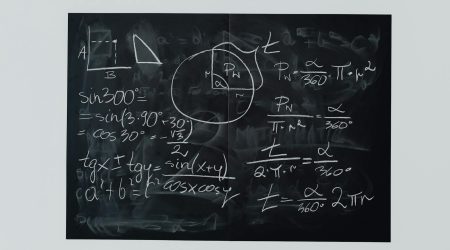 A
B
sin300°=
=sin(3·90°+30°)
=-cos30°=-√3/2
tgx±tgy=sin(x±y)/cosxcosy
a²+b²=c²
t
P_w
α
r
r
P_w=α/360°·π·r²
P_w/π·r²=α/360°
t/2·π·r=α/360°
t=α/360° 2πr